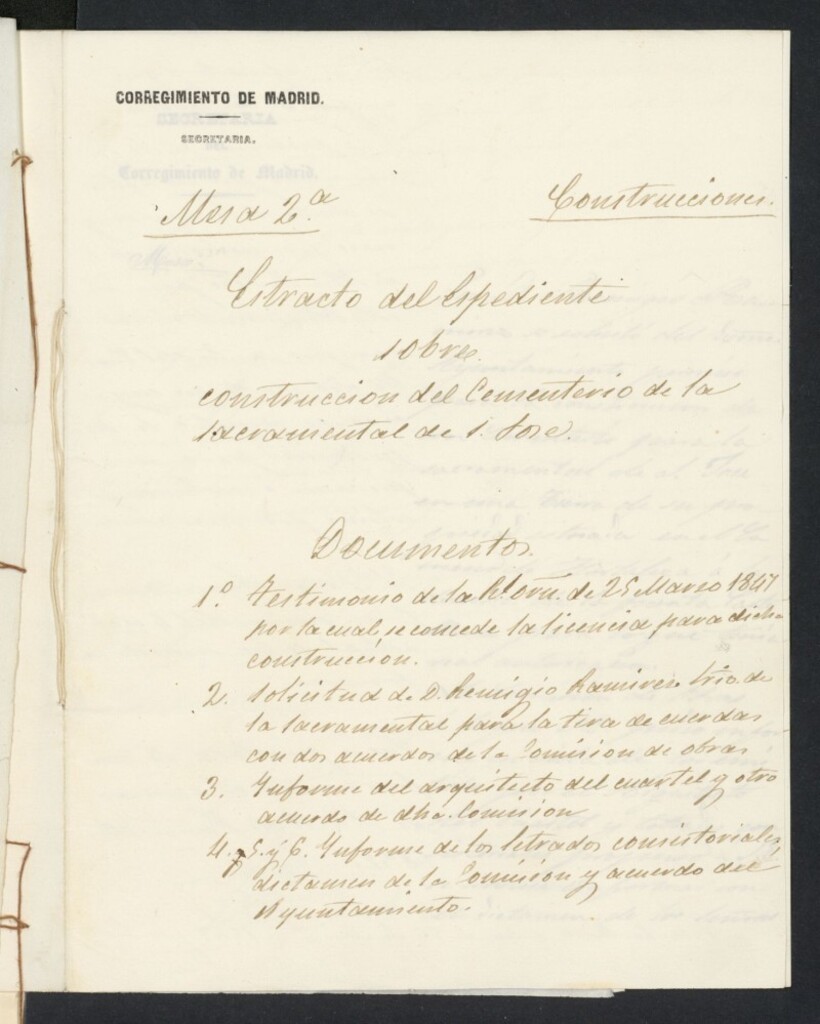 CORREGIMIENTO DE MADRID.
SECRETARIA.
Mesa 2.a
Construcciones.
Estracto del Espediente
sobre
construccion del Cementerio de la
sacramental de S. Jose.
Documentos.
1.o Testimonio de la Rl. orn. de 25 Marzo 1847
por la cual se concede la licencia para dicha
construccion.
2. Solicitud de D. Remigio Ramirez Srio. de
la sacramental para la tira de cuerdas
con dos acuerdos de la Comision de obras
3. Informe del arquitecto del cuartel y otro
acuerdo de dha. Comision
4. 5. y 6. Informe de los letrados consistoriales,
dictamen de la Comision y acuerdo del
Ayuntamiento.